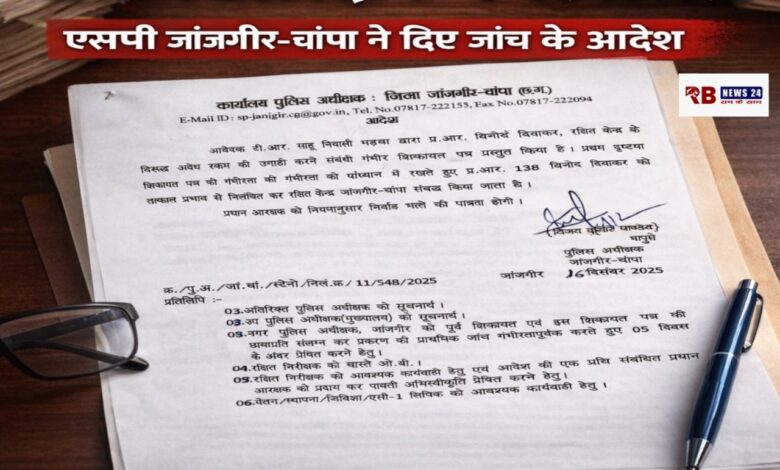 एसपी जांजगीर-चांपा ने दिए जांच के आदेश
RB NEWS 24
सच के साथ
कार्यालय पुलिस अधीक्षक : जिला जांजगीर-चांपा (छ.ग.)
E-Mail ID : sp-janjgir.cg@gov.in, Tel. No.07817-222153, Fax No.07817-222094
आदेश
आवेदक टी.आर. साहू निवासी मड़वा द्वारा प्र.आर. विनोद दिवाकर, रक्षित केन्द्र के
विरूद्ध अवैध रकम की उगाही करने संबंधी गंभीर शिकायत पत्र प्रस्तुत किया है। प्रथम दृष्टया
शिकायत पत्र की गंभीरता की गंभीरता को पांध्यान में रखते हुए प्र.आर. 138 विनोद दिवाकर को
तात्काल प्रभाव से निलंबित कर रक्षित केन्द्र जांजगीर-चांपा संबद्ध किया जाता है।
प्रधान आरक्षक को नियमानुसार निर्वाह भत्ते की पात्रता होगी।
(विजय कुमार पाण्डेय)
भापुसे
पुलिस अधीक्षक
जांजगीर-चांपा
क्र./पु.अ./जां.चां./स्टेनो/निलं.क्र/ 11/548/2025 जांजगीर 16 दिसंबर 2025
प्रतिलिपि :-
03.अतिरिक्त पुलिस अधीक्षक को सूचनार्थ।
03.उप पुलिस अधीक्षक(मुख्यालय) को सूचनार्थ।
03.नगर पुलिस अधीक्षक, जांजगीर को पूर्व शिकायत एवं इस शिकायत पत्र की
छायाप्रति संलग्न कर प्रकरण की प्राथमिक जांच गंभीरतापूर्वक करते हुए 05 दिवस
के अंदर प्रेषित करने हेतु।
04.रक्षित निरीक्षक को वास्ते ओ.बी.।
05.रक्षित निरीक्षक को आवश्यक कार्यवाही हेतु एवं आदेश की एक प्रति संबंधित प्रधान
आरक्षक को प्रदाय कर पावती अभिस्वीकृति प्रेषित करने हेतु।
06.वेतन/स्थापना/जिविशा/एसी-1 लिपिक को आवश्यक कार्यवाही हेतु।